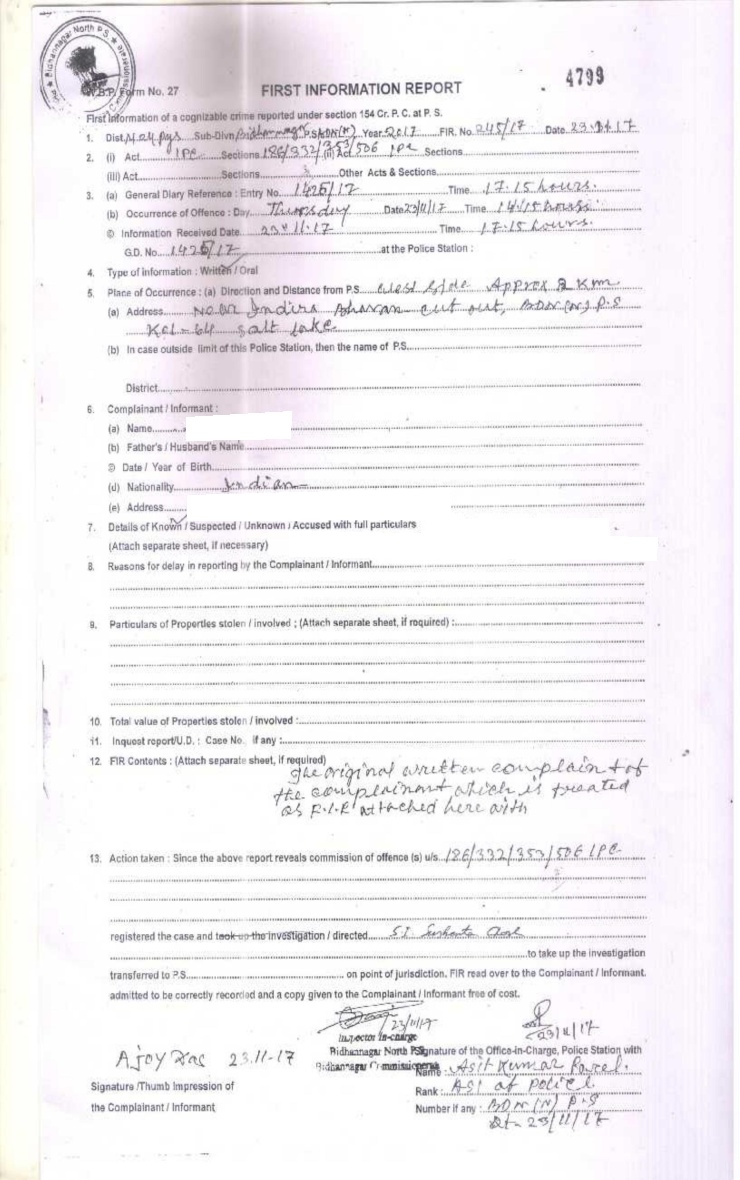 Bidhannagar North P.S.
4799
W.B.P. Form No. 27
FIRST INFORMATION REPORT
First Information of a cognizable crime reported under section 154 Cr. P. C. at P. S.
1. Dist. N. 24 pgs Sub-Divn Bidhannagar P.S. BDN(N) Year 2017 FIR. No. 245/17 Date 23.11.17
2. (i) Act IPC Sections 186/332/353/506 IPC (ii) Act Sections
(iii) Act Sections Other Acts & Sections
3. (a) General Diary Reference : Entry No. 1425/17 Time 17.15 hours.
(b) Occurrence of Offence : Day Thursday Date 23/11/17 Time 14.15 hours
© Information Received Date 23.11.17 Time 17.15 hours.
G.D. No. 1425/17 at the Police Station :
4. Type of information : Written / Oral
5. Place of Occurrence : (a) Direction and Distance from P.S. West side Approx 2 Km
(a) Address Near Indira Bhavan cut out, BDN (N) P.S
Kol - 64 salt lake
(b) In case outside limit of this Police Station, then the name of P.S.
District
6. Complainant / Informant :
(a) Name
(b) Father's / Husband's Name
© Date / Year of Birth
(d) Nationality Indian
(e) Address
7. Details of Known / Suspected / Unknown / Accused with full particulars
(Attach separate sheet, if necessary)
8. Reasons for delay in reporting by the Complainant / Informant
9. Particulars of Properties stolen / involved ; (Attach separate sheet, if required) :
10. Total value of Properties stolen / involved :
11. Inquest report/U.D. : Case No. if any :
12. FIR Contents : (Attach separate sheet, if required)
The original written complaint of
the complainant which is treated
as F.I.R attached here with
13. Action taken : Since the above report reveals commission of offence (s) u/s. 186/332/353/506 IPC
registered the case and took up the investigation / directed S.I.
to take up the investigation
transferred to P.S. on point of jurisdiction. FIR read over to the Complainant / Informant.
admitted to be correctly recorded and a copy given to the Complainant / Informant free of cost.
23/11/17
23/11/17
Inspector in-charge
Bidhannagar North P.S.
Bidhannagar Commissionerate
Signature of the Office-in-Charge, Police Station with
Ajoy Das 23.11-17
Name : Asit Kumar Parcel.
Signature /Thumb Impression of
Rank : ASI of police.
the Complainant / Informant
Number if any : BDN (N) P.S
Dt - 23/11/17